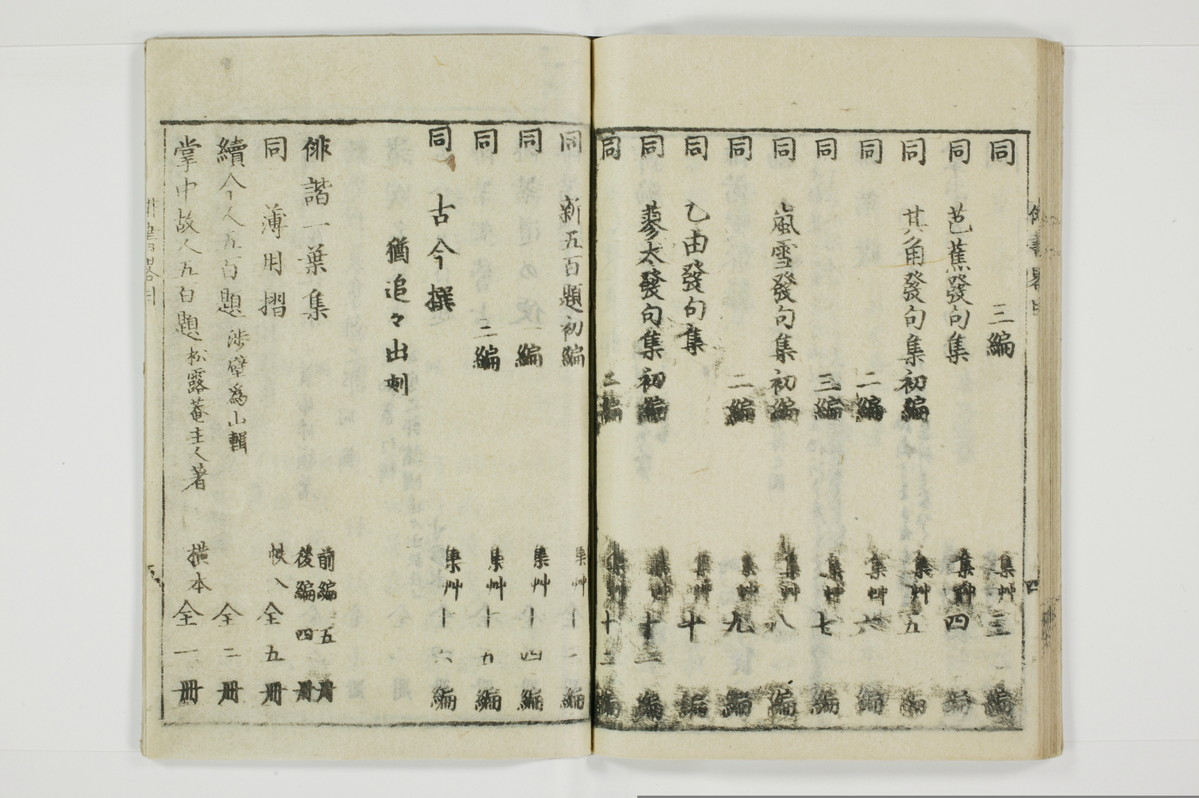 同 三編 集艸三編
同 芭蕉發句集 集艸四編
同 其角發句集初編 集艸五編
同 二編 集艸六編
同 三編 集艸七編
同 嵐雪發句集初編 集艸八編
同 二編 集艸九編
同 乙由發句集 集艸十編
同 蓼太發句集初編 集艸十三編
同 編 集艸十編
同 新五百題初編 集艸十編
同 二編 集艸十四編
同 二編 集艸十五編
同 古今撰 集艸十六編
猶追々出刻
俳諧一葉集 前編五冊 後編四冊
同 薄用摺 帙入全五冊
續今人五百題 渉壁為山輯 全二冊
掌中故人五百題 松露菴主人著 横本全一冊